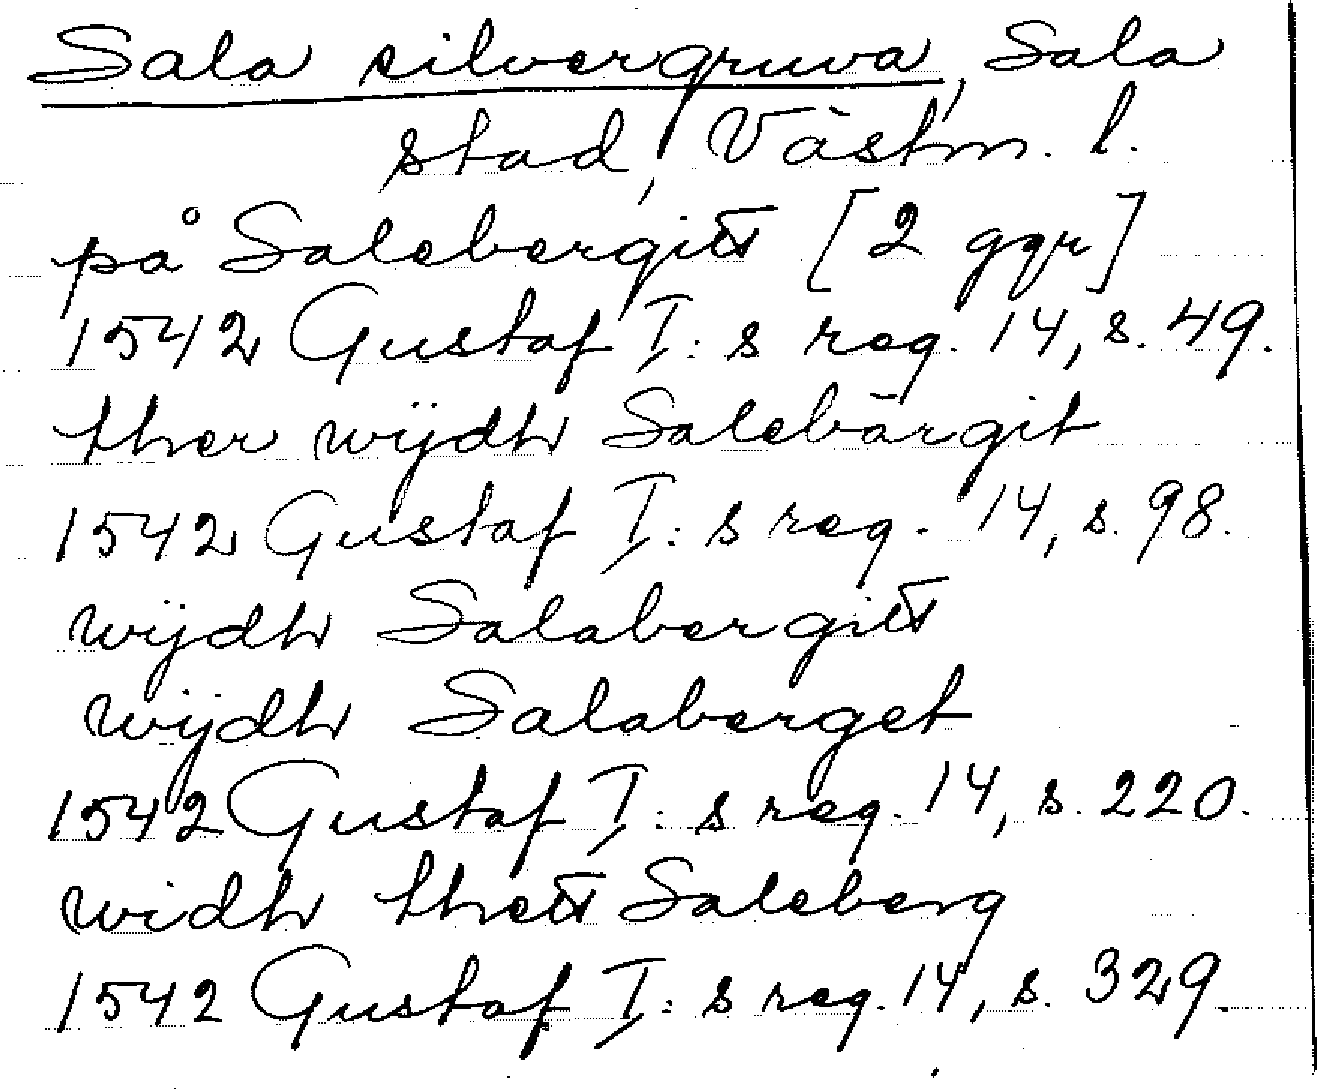 Sala silvergruva, Sala
stad, Västm. l.
på Salebergitt [2 ggr]
1542 Gustaf I: s reg. 14, s. 49.
ther wÿdh Salebärgit
1542 Gustaf I: s reg. 14, s. 98.
wÿdh Salabergitt
wÿdh Salaberget
1542 Gustaf I: s reg. 14, s. 220.
widh thett Saleberg
1542 Gustaf I: s reg. 14, s. 329.